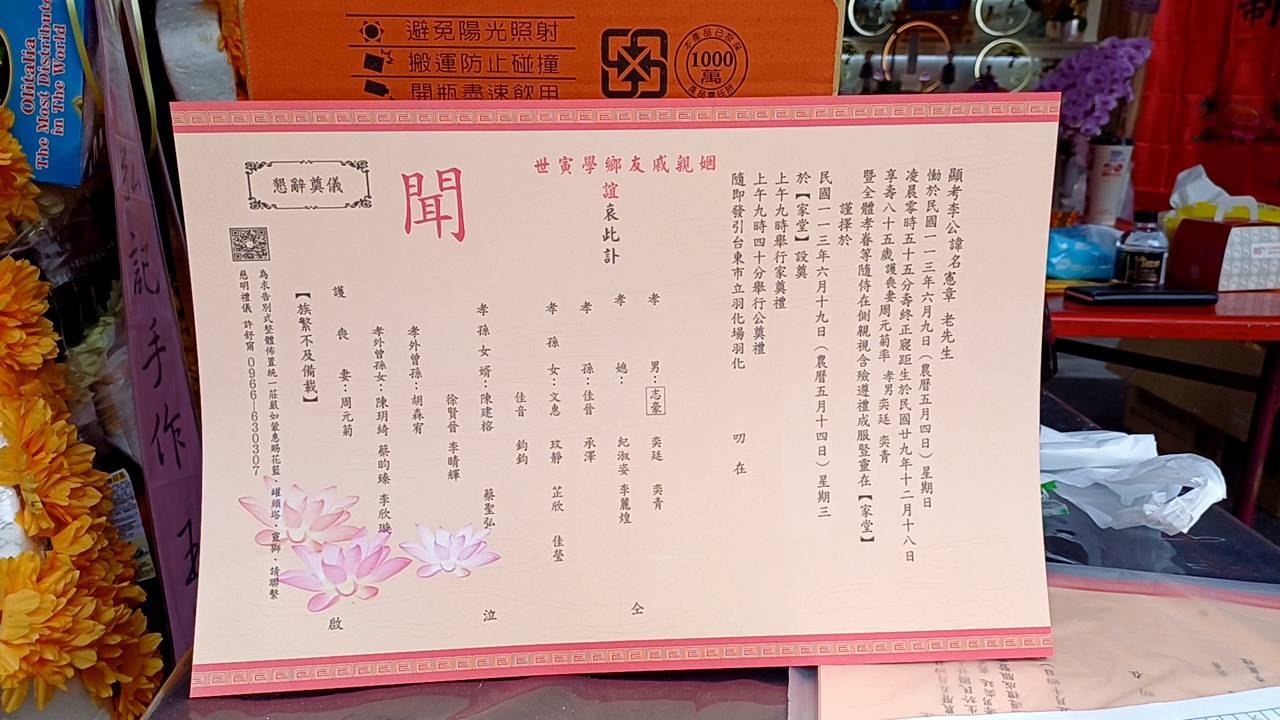 Olitalia
The Most Distributed
in The World
避免陽光照射
搬運防止碰撞
開瓶盡速飲用
本產品已投保
1000
萬
產品責任險
顯考李公諱名憲章 老先生
慟於民國一一三年六月九日（農曆五月四日）星期日
凌晨零時五十五分壽終正寢距生於民國廿九年十二月十八日
享壽八十五歲護喪妻周元菊率 孝男奕廷 奕青
暨全體孝眷等隨侍在側親視含殮遵禮成服暨靈在【家堂】
謹擇於
民國一一三年六月十九日（農曆五月十四日）星期三
於【家堂】設奠
上午九時舉行家奠禮
上午九時四十分舉行公奠禮
隨即發引台東市立羽化場羽化 叨在
世寅學鄉友戚親姻
誼哀此訃
聞
孝男：志豪 奕廷 奕青
孝媳：紀淑姿 李麗煌
仝
孝孫：佳晉 承澤
孝孫女：文惠 玟靜 芷欣 佳瑩
佳音 鈞鈞
孝孫女婿：陳建榕 蔡聖弘
徐賢晉 李晴輝
泣
孝外曾孫：胡森宥
孝外曾孫女：陳玥綺 蔡昀臻 李欣璇
護喪妻：周元菊
啟
【族繁不及備載】
懇辭奠儀
為求告別式整體佈置統一莊嚴如蒙惠賜花籃、罐頭塔、靈獅、請聯繫
慈明禮儀 許舒甯 0966-630307
記手作